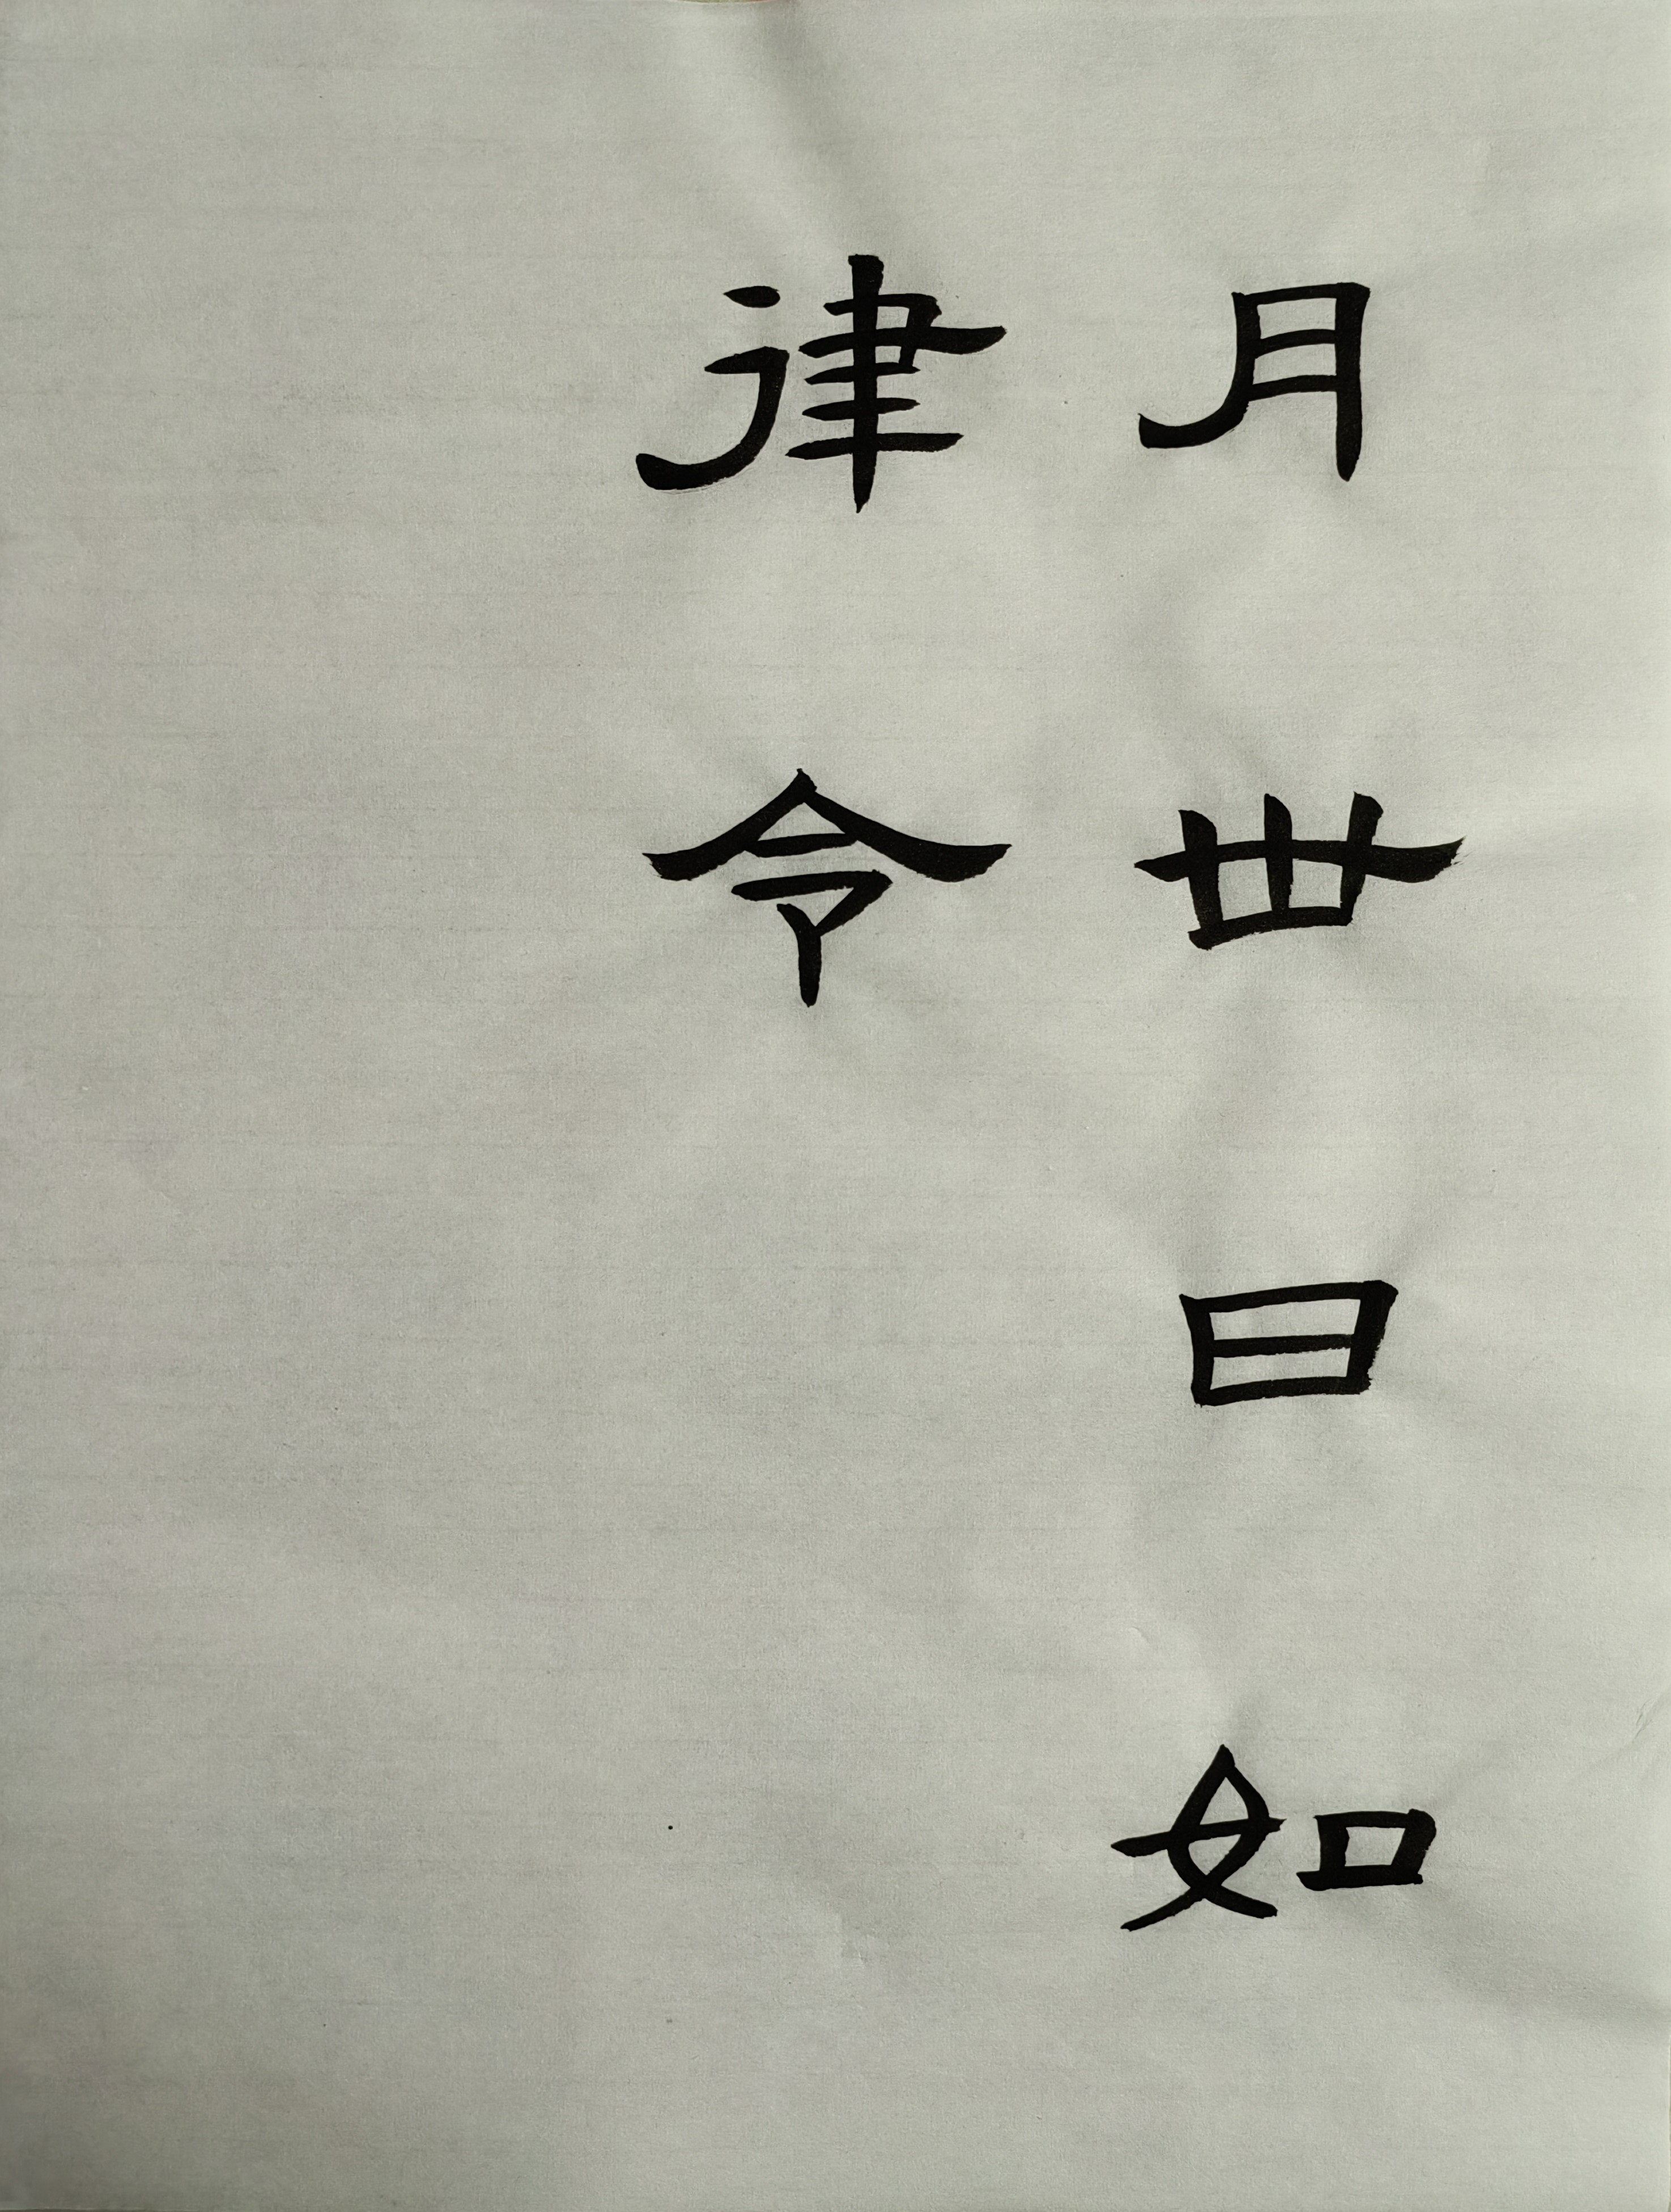 月丗日如
律令